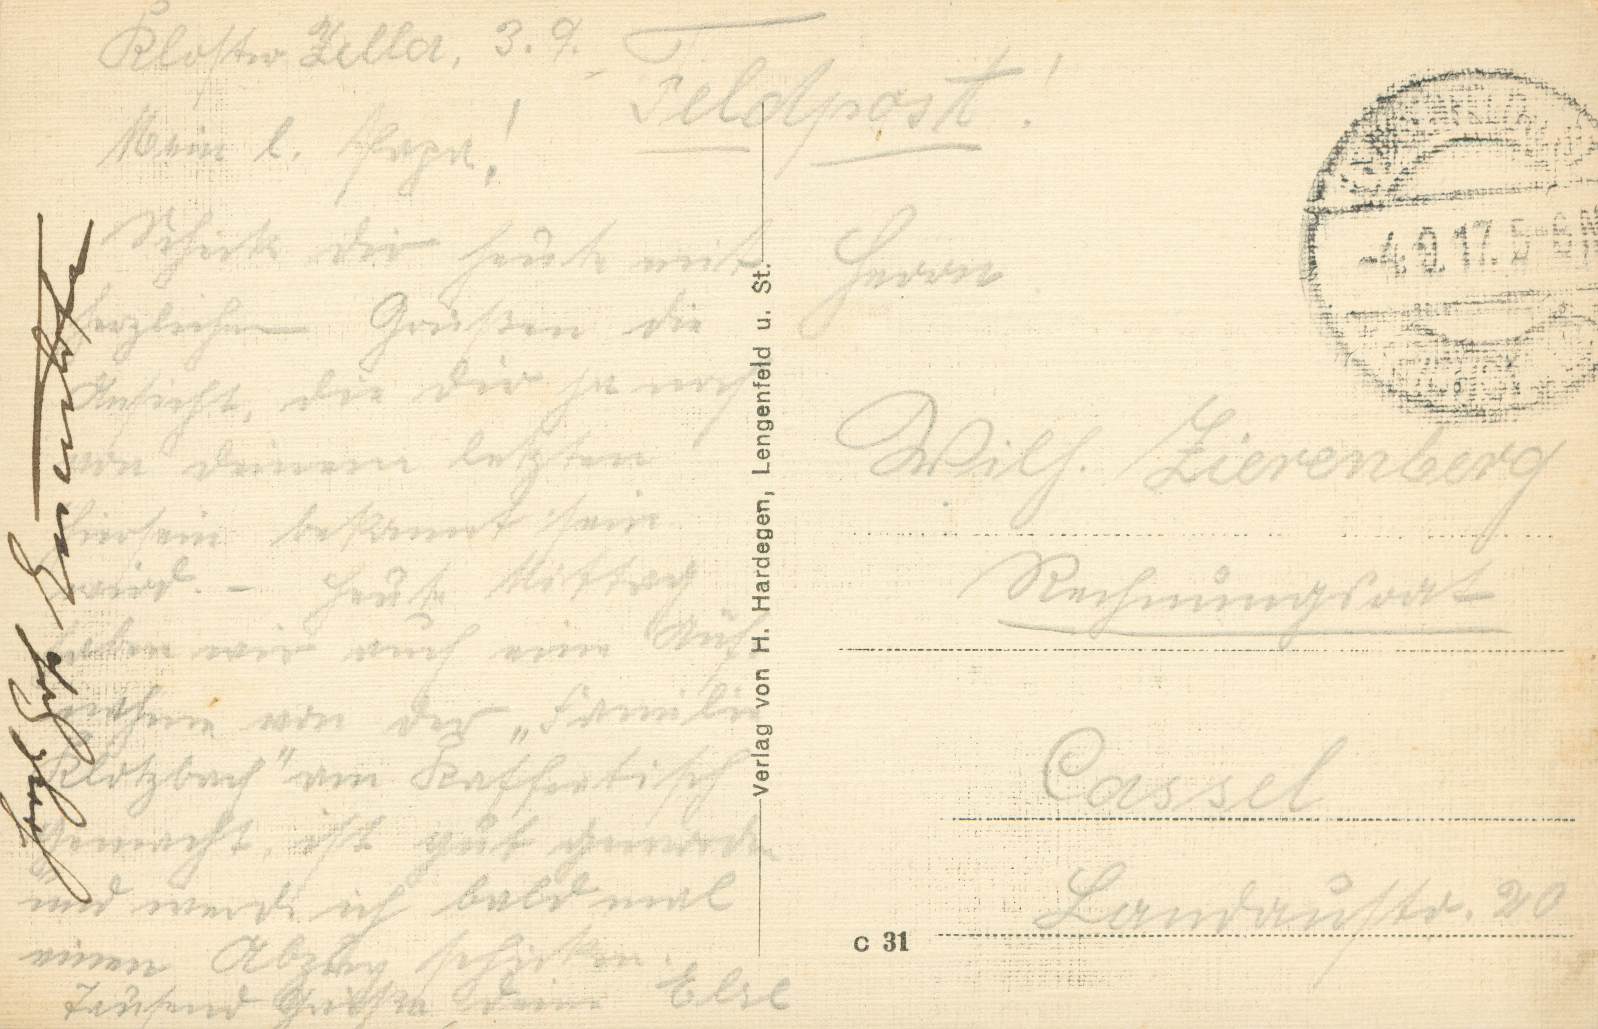 Kloster Zella, 3. 9.
Mein l. Papa!
Schicke dir heute mit
herzlichen Grüßen die
Ansicht, die dir ja noch
von deinem letzten
Hiersein bekannt sein
wird. – Heute Mittag
haben wir auch eine Auf-
nahme von der „Familie
Klotzbach" am Kaffeetisch
gemacht, ist gut geworden
und werde ich bald mal
einen Abzug schicken.
Tausend Grüße, deine Else
Verlag von H. Hardegen, Lengenfeld u. St.
Feldpost!
-4.9.17. 5-6N
Herrn
Wilh. Zierenberg
Rechnungsrat
Cassel
Landaustr. 20
C 31